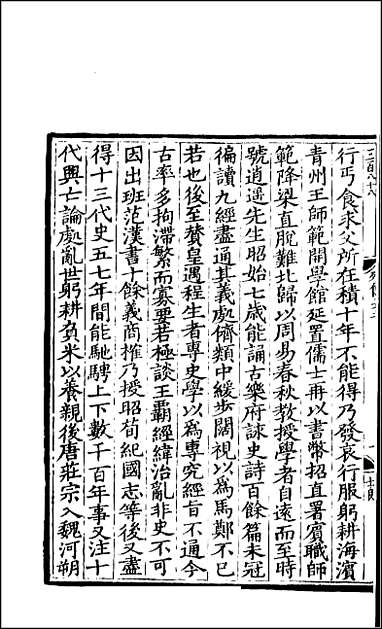 行丐食求父所在積十年不能得乃發哀行服躬耕海濵
青州王師範開學館延置儒士再以書幣招直署賓職師
範降梁直脫難北歸以周易春秋教授學者自遠而至時
號逍遥先生昭始七歲能誦古樂府詠史詩百餘篇未冠
徧讀九經盡通其義處儕類中緩步闊視以為馬鄭不已
若也後至贊皇遇程生者專史學以為專究經旨不通今
古率多拘滯繁而寡要若極談王霸經緯治亂非史不可
因出班范漢書十餘義商權乃授昭荀紀國志等後又盡
得十三代史五七年間能馳騁上下數千百年事又注十
代興亡論處亂世躬耕負米以養親後唐莊宗入魏河朔